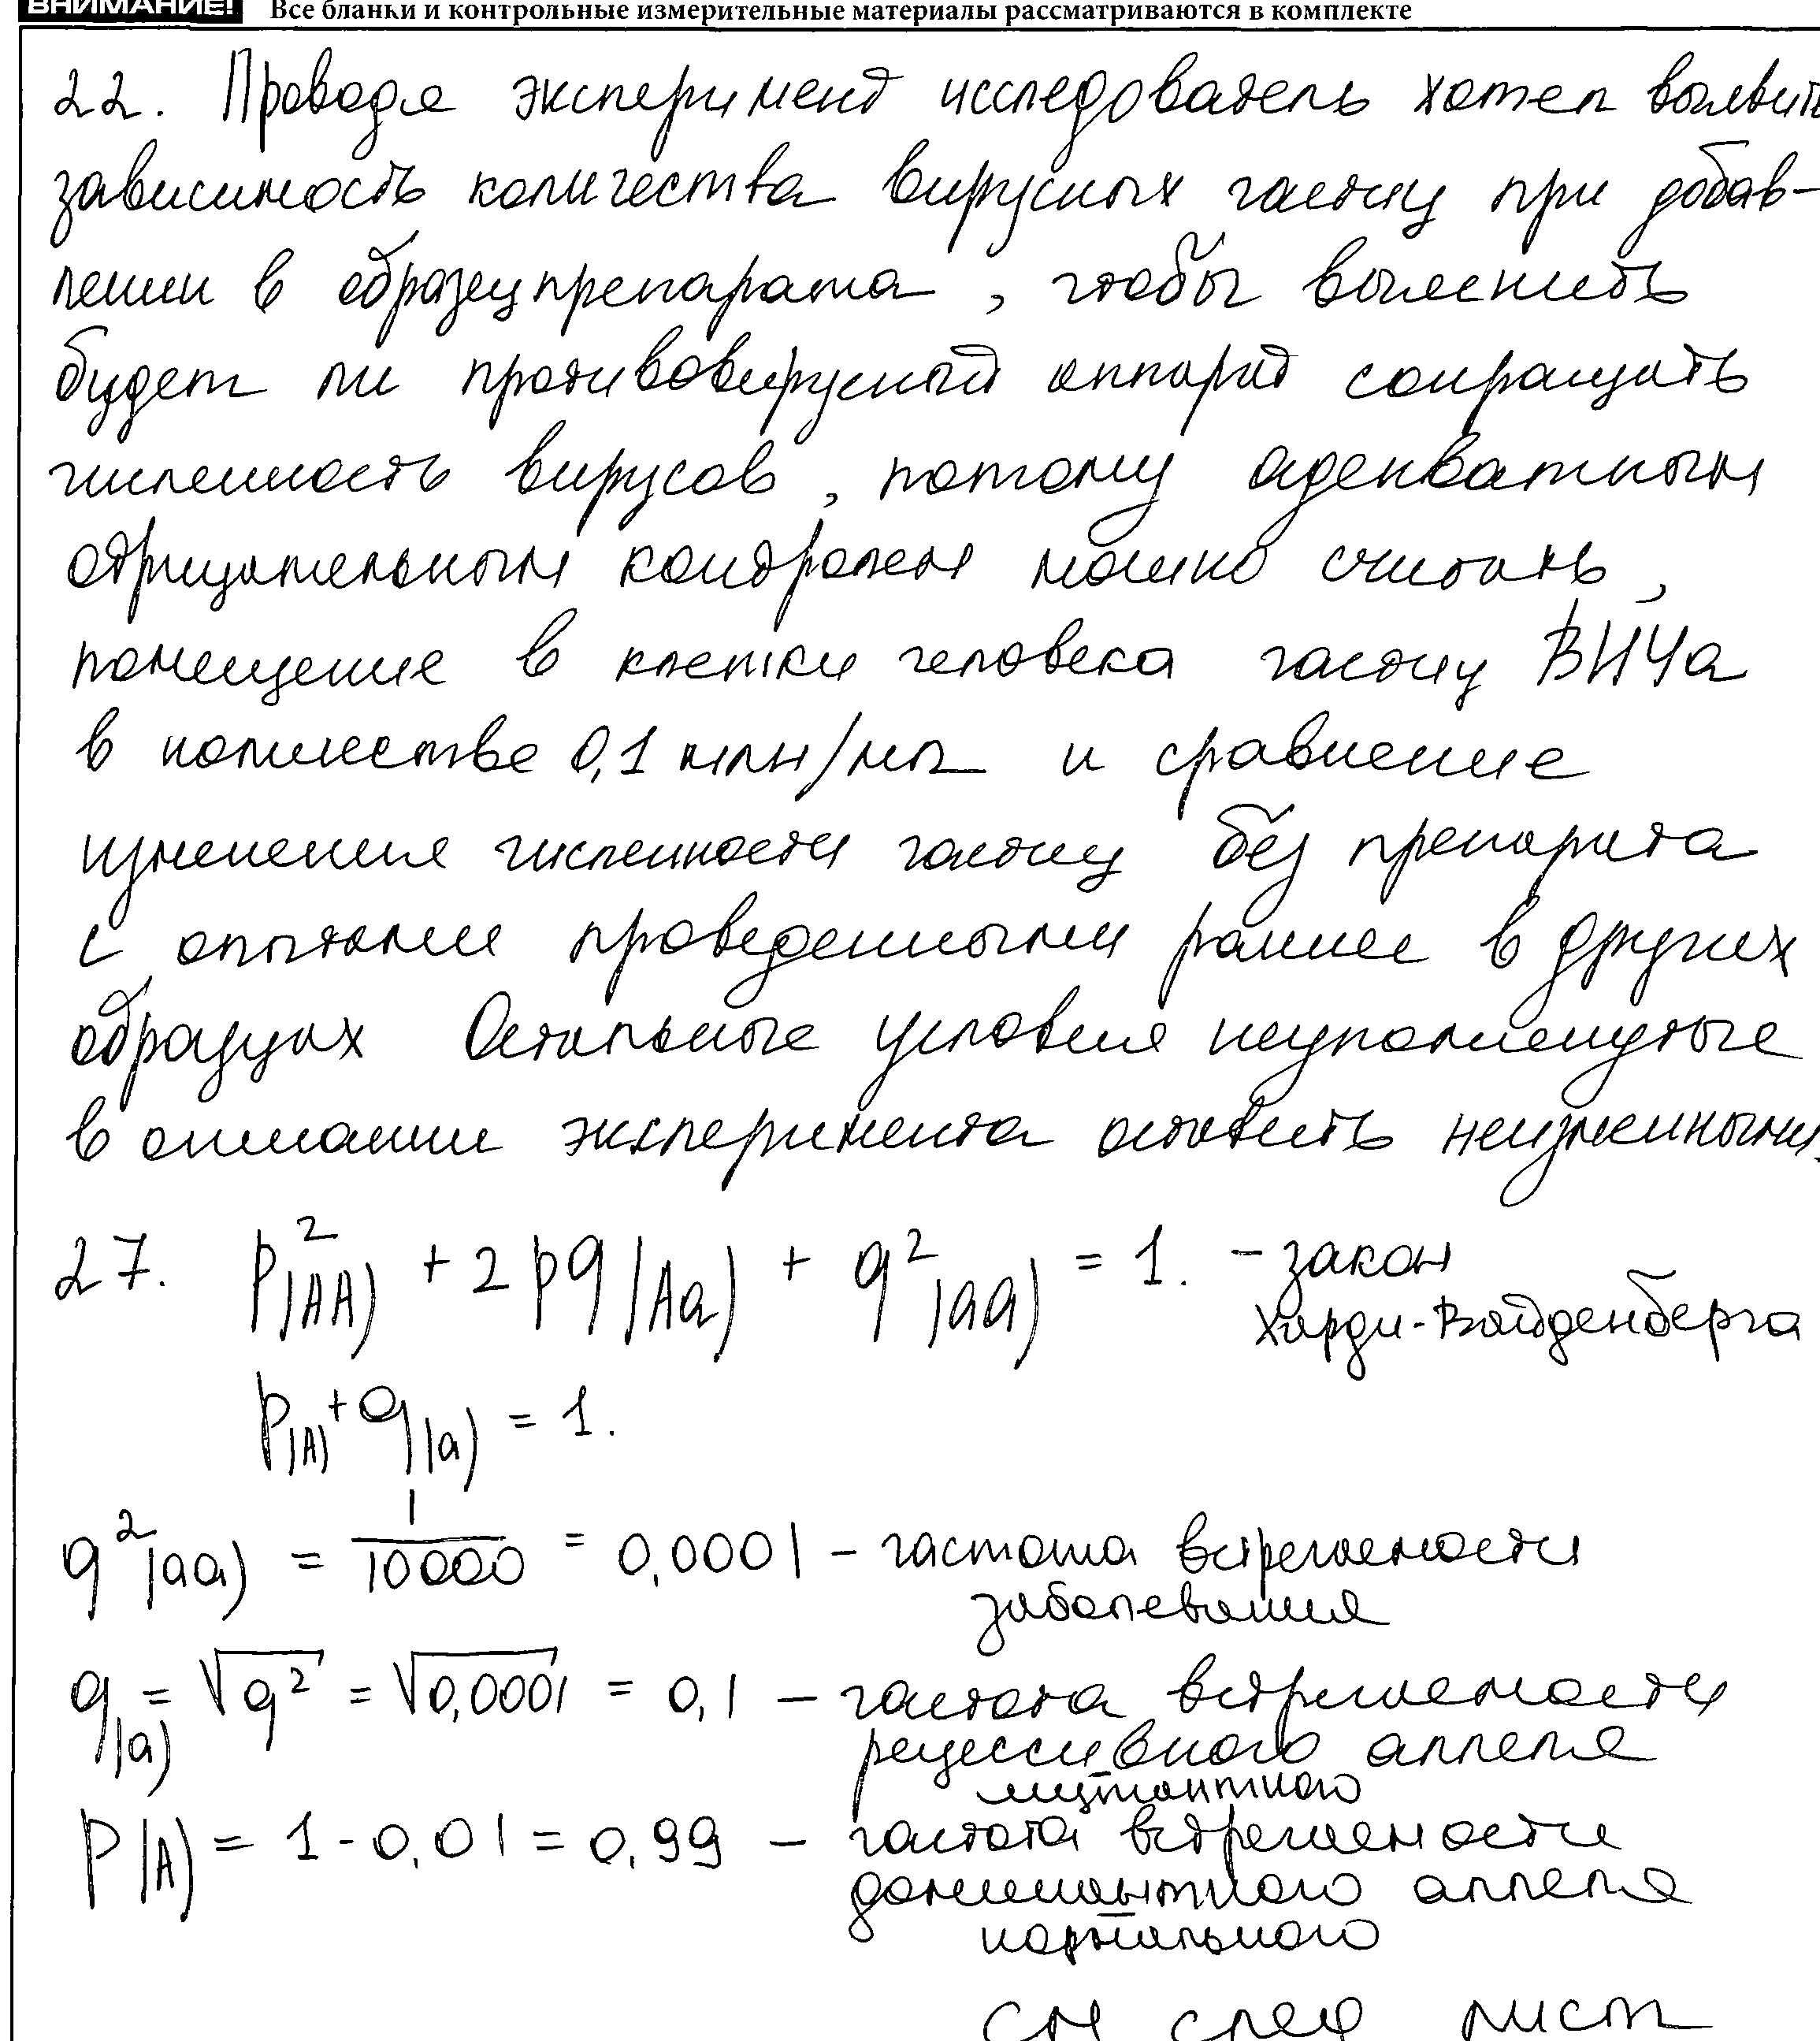 ВНИМАНИЕ! Все бланки и контрольные измерительные материалы рассматриваются в комплекте
22. Проводя эксперимент исследователь хотел выявить
зависимость количества вирусных частиц при добав-
лении в образец препарата, чтобы выяснить
будет ли противовирусный аппарат сокращать
численность вирусов, потому адекватным
отрицательным контролем можно считать,
помещение в клетки человека частиц ВИЧа
в количестве 0,1 млн/мл и сравнение
изменения численности частиц без препарата
с опытами проведенными раннее в других
образцах Остальные условия неупомянутые
в описании эксперимента оставить неизменными.
27. p²(AA) + 2pq(Aa) + q²(aa) = 1. – закон
Харди-Вайденберга
p(A) + q(a) = 1.
q²(aa) = 1/10000 = 0,0001 – частота встречаемости
заболевания
q(a) = √q² = √0,0001 = 0,1 – частота встречаемости
рецессивного аллеля
мутантного
p(A) = 1 - 0,01 = 0,99 – частота встречаемости
доминантного аллеля
нормального
см след лист